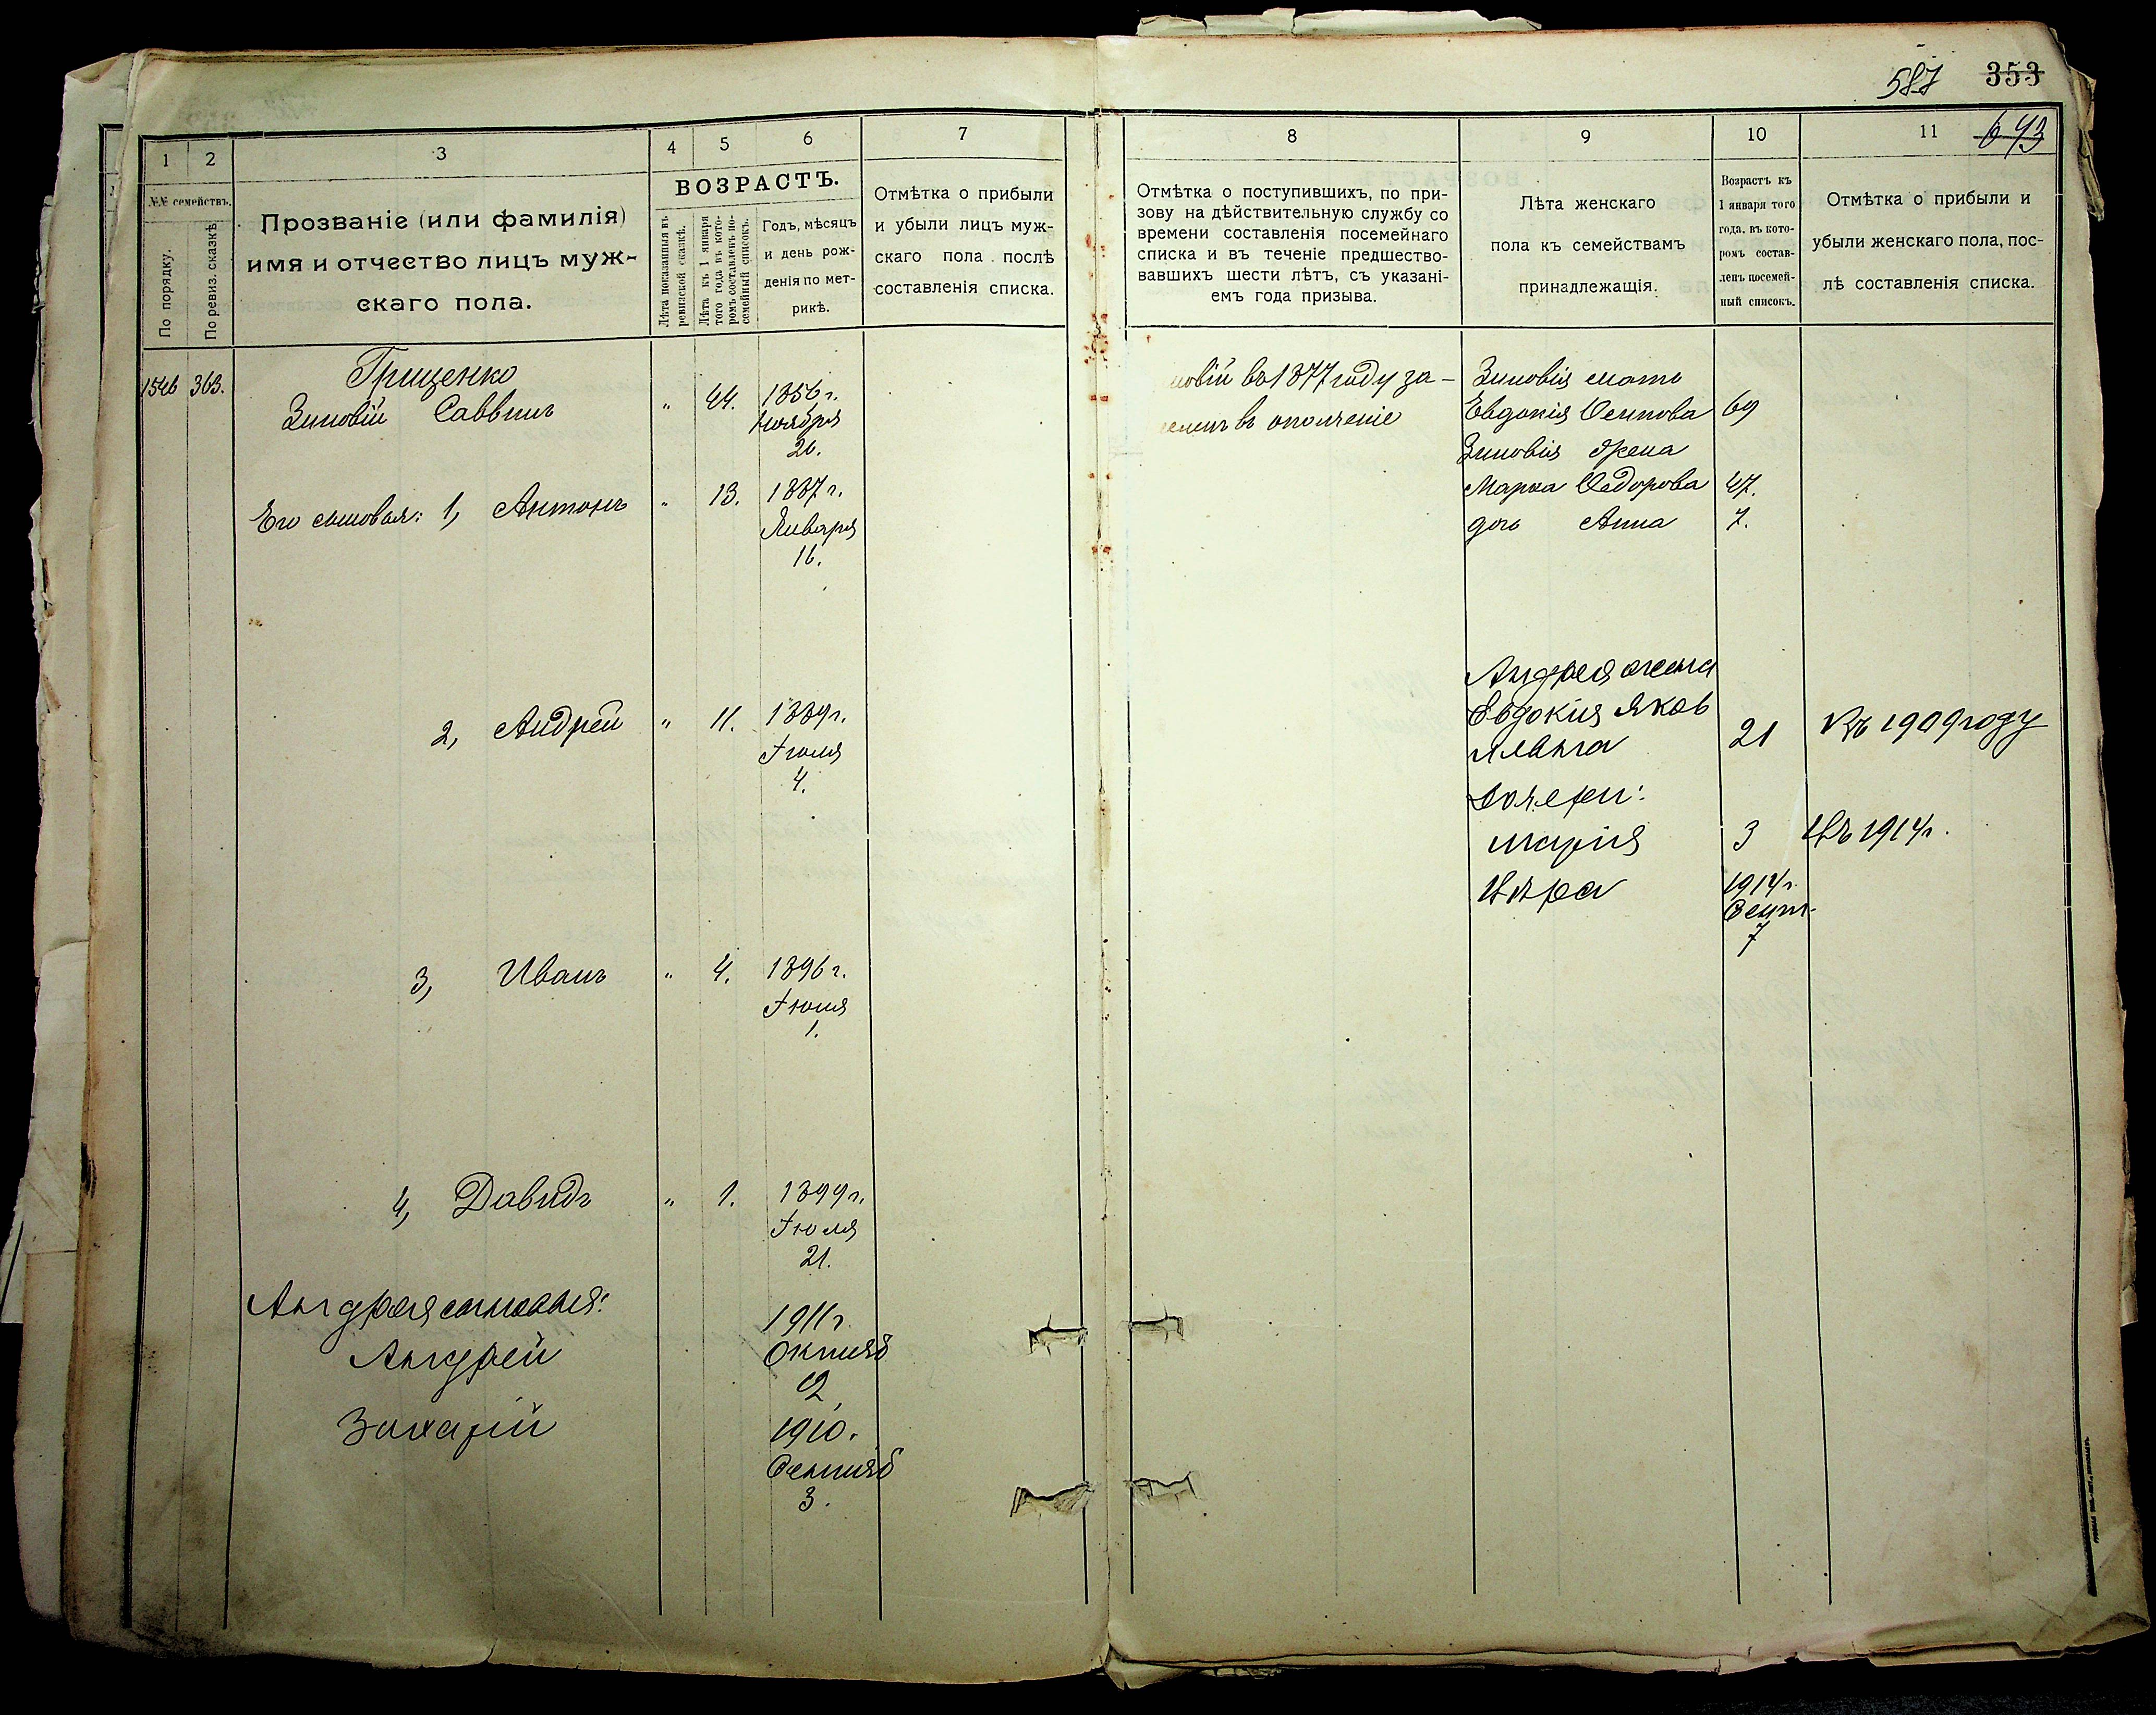 587 353
643
1 2 3 4 5 6 7
№№ семействъ.
По порядку.
По ревиз. сказкѣ.
Прозваніе (или фамилія)
имя и отчество лицъ муж-
скаго пола.
ВОЗРАСТЪ.
Лѣта показанныя въ
ревизской сказкѣ.
Лѣта къ 1 января
того года въ кото-
ромъ составленъ по-
семейный списокъ.
Годъ, мѣсяцъ
и день рож-
денія по мет-
рикѣ.
Отмѣтка о прибыли
и убыли лицъ муж-
скаго пола послѣ
составленія списка.
1546 363.
Грищенко
Зиновій Саввинъ " 44. 1856 г.
Ноября
20.
Его сыновья: 1, Антонъ " 13. 1887 г.
Января
16.
2, Андрей " 11. 1889 г.
Іюля
4.
3, Иванъ " 4. 1896 г.
Іюня
1.
4, Давидъ " 1. 1899 г.
Іюля
21.
Андрея сыновья:
Андрей
1911 г
Октяб
2
Захарій
1910.
Сентяб
3.
8 9 10 11
Отмѣтка о поступившихъ, по при-
зову на дѣйствительную службу со
времени составленія посемейнаго
списка и въ теченіе предшество-
вавшихъ шести лѣтъ, съ указані-
емъ года призыва.
Лѣта женскаго
пола къ семействамъ
принадлежащія.
Возрастъ къ
1 января того
года, въ кото-
ромъ состав-
ленъ посемей-
ный списокъ.
Отмѣтка о прибыли и
убыли женскаго пола, пос-
лѣ составленія списка.
новій въ 1877 году за-
челенъ въ ополченіе
Зиновія мать
Евдокія Осипова 69
Зиновія Жена
Марѳа Ѳедорова 47.
дочь Анна 7.
Андрея жена
Евдокія Яков
лявына 21 Къ 1909 году
Дочери:
Марія 3 Въ 1914 г.
Вѣра 1914 г.
Сент.
7